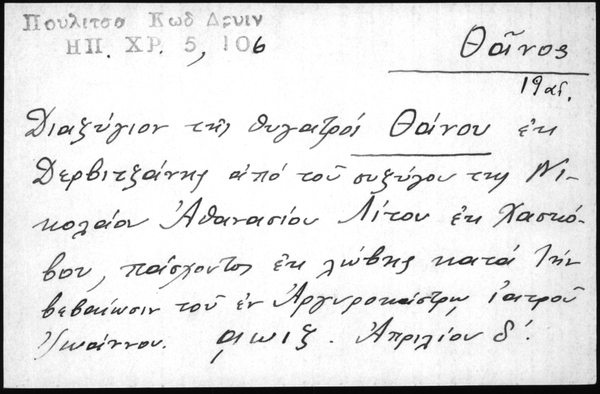 Πουλιτσα Κωδ Δρυιν
ΗΠ. ΧΡ. 5, 106
Θᾶνος
19 αἰ.
Διαζύγιον τῆς θυγατρός Θάνου ἐκ
Δερβιτζάνης ἀπό τοῦ συζύγου της Νι-
κολάου Ἀθανασίου Λίτου ἐκ Χασκό-
βου, πάσχοντος ἐκ λώβης κατά τήν
βεβαίωσιν τοῦ ἐν Ἀργυροκάστρῳ ἰατροῦ
Ἰωάννου. ᾳωιζ. Ἀπριλίου δ´.